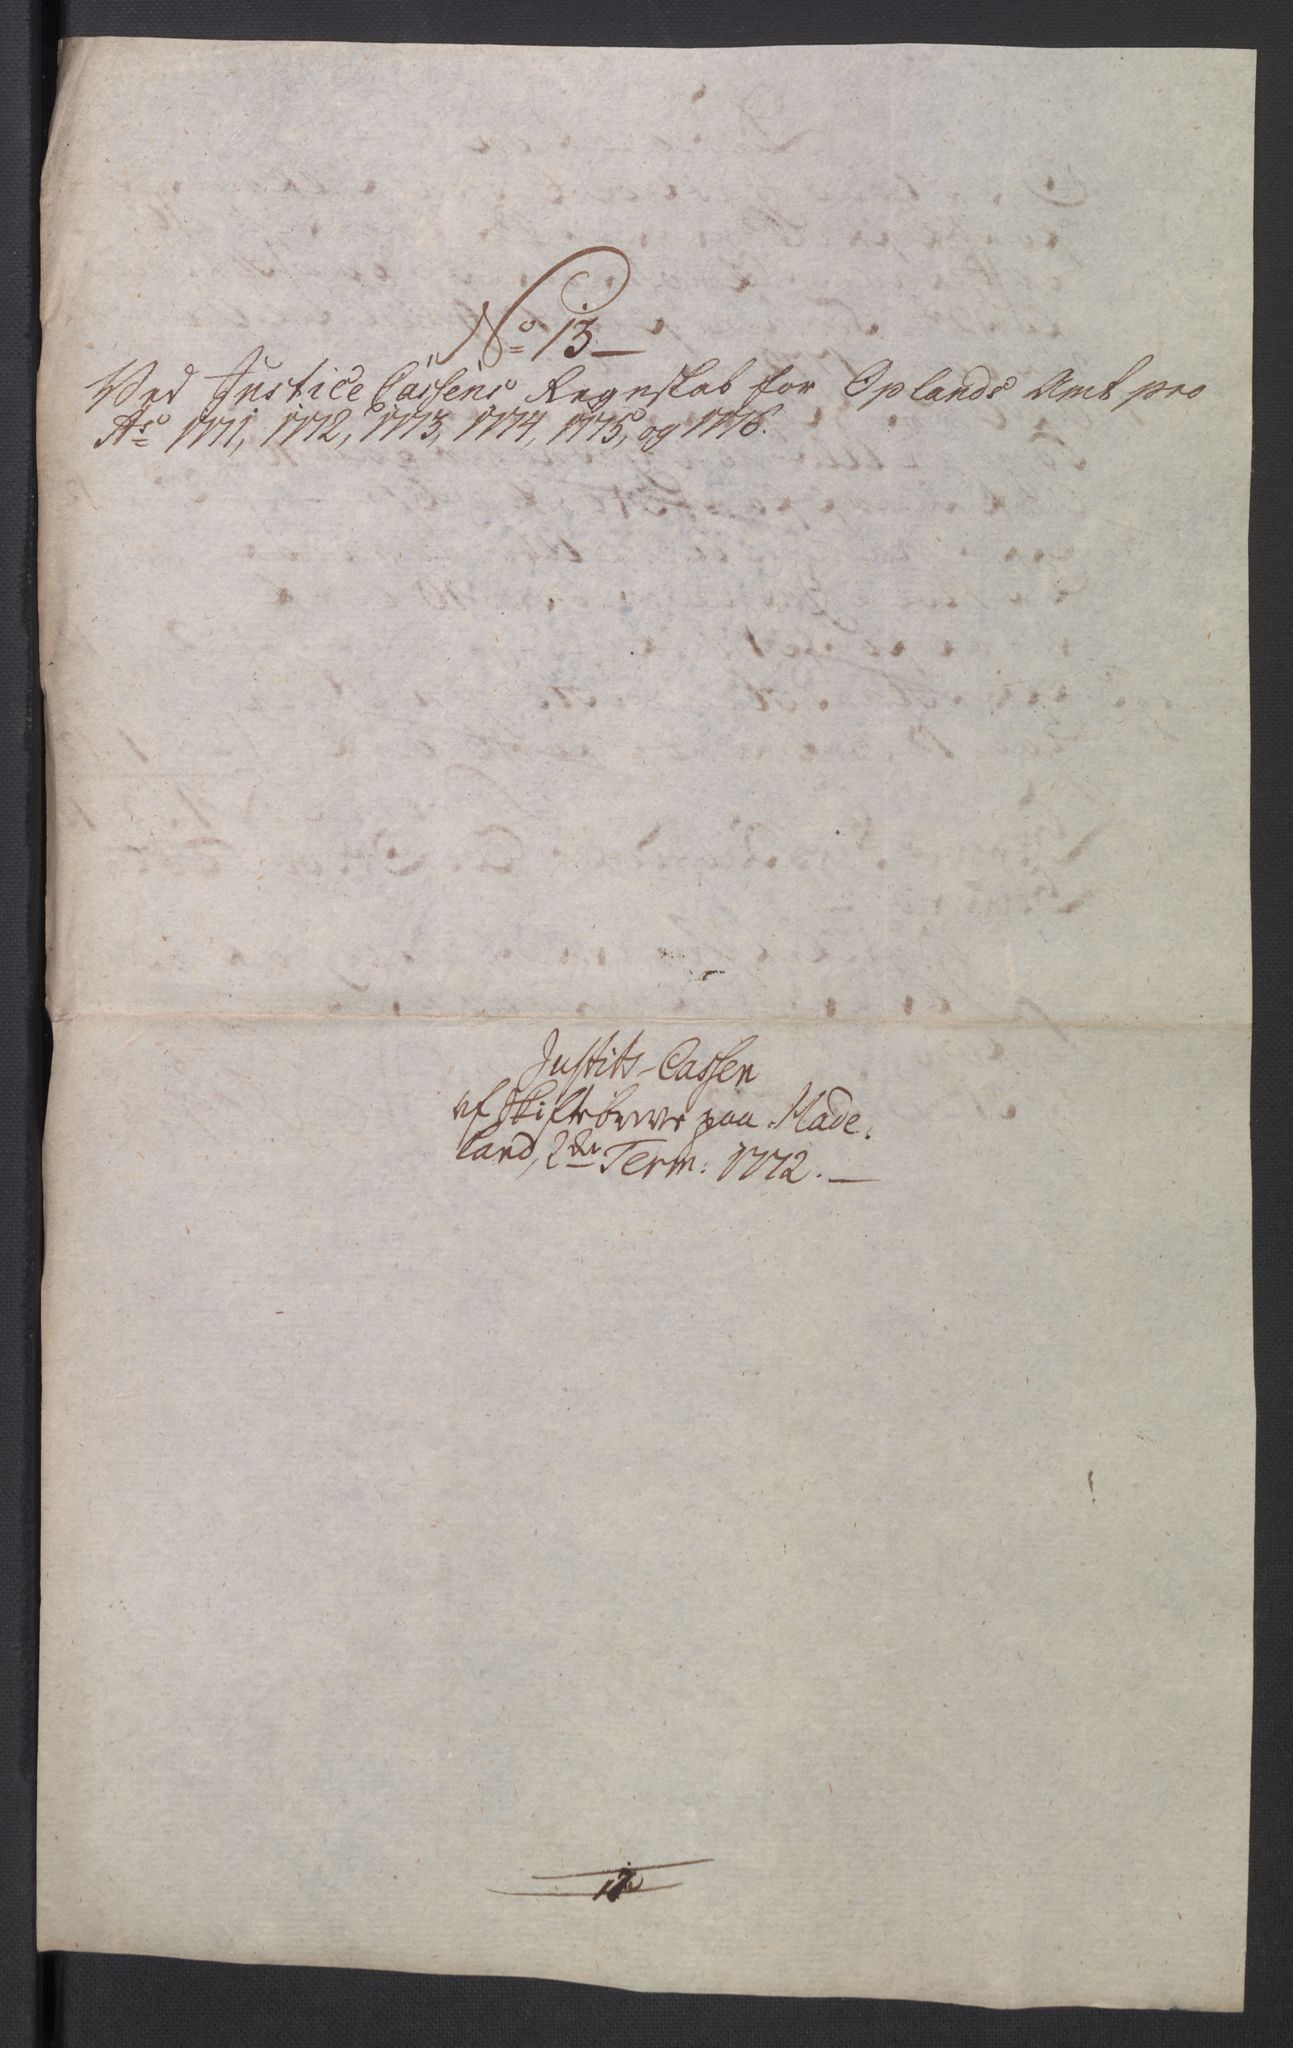 No 13
Ved Justice Cassens Regnskab for Oplands Amt pro
Ao 1771, 1772, 1773, 1774, 1775, og 1776.
Justits-Cassen
af Skiftebreve paa Hade-
land, 2den Term: 1772.